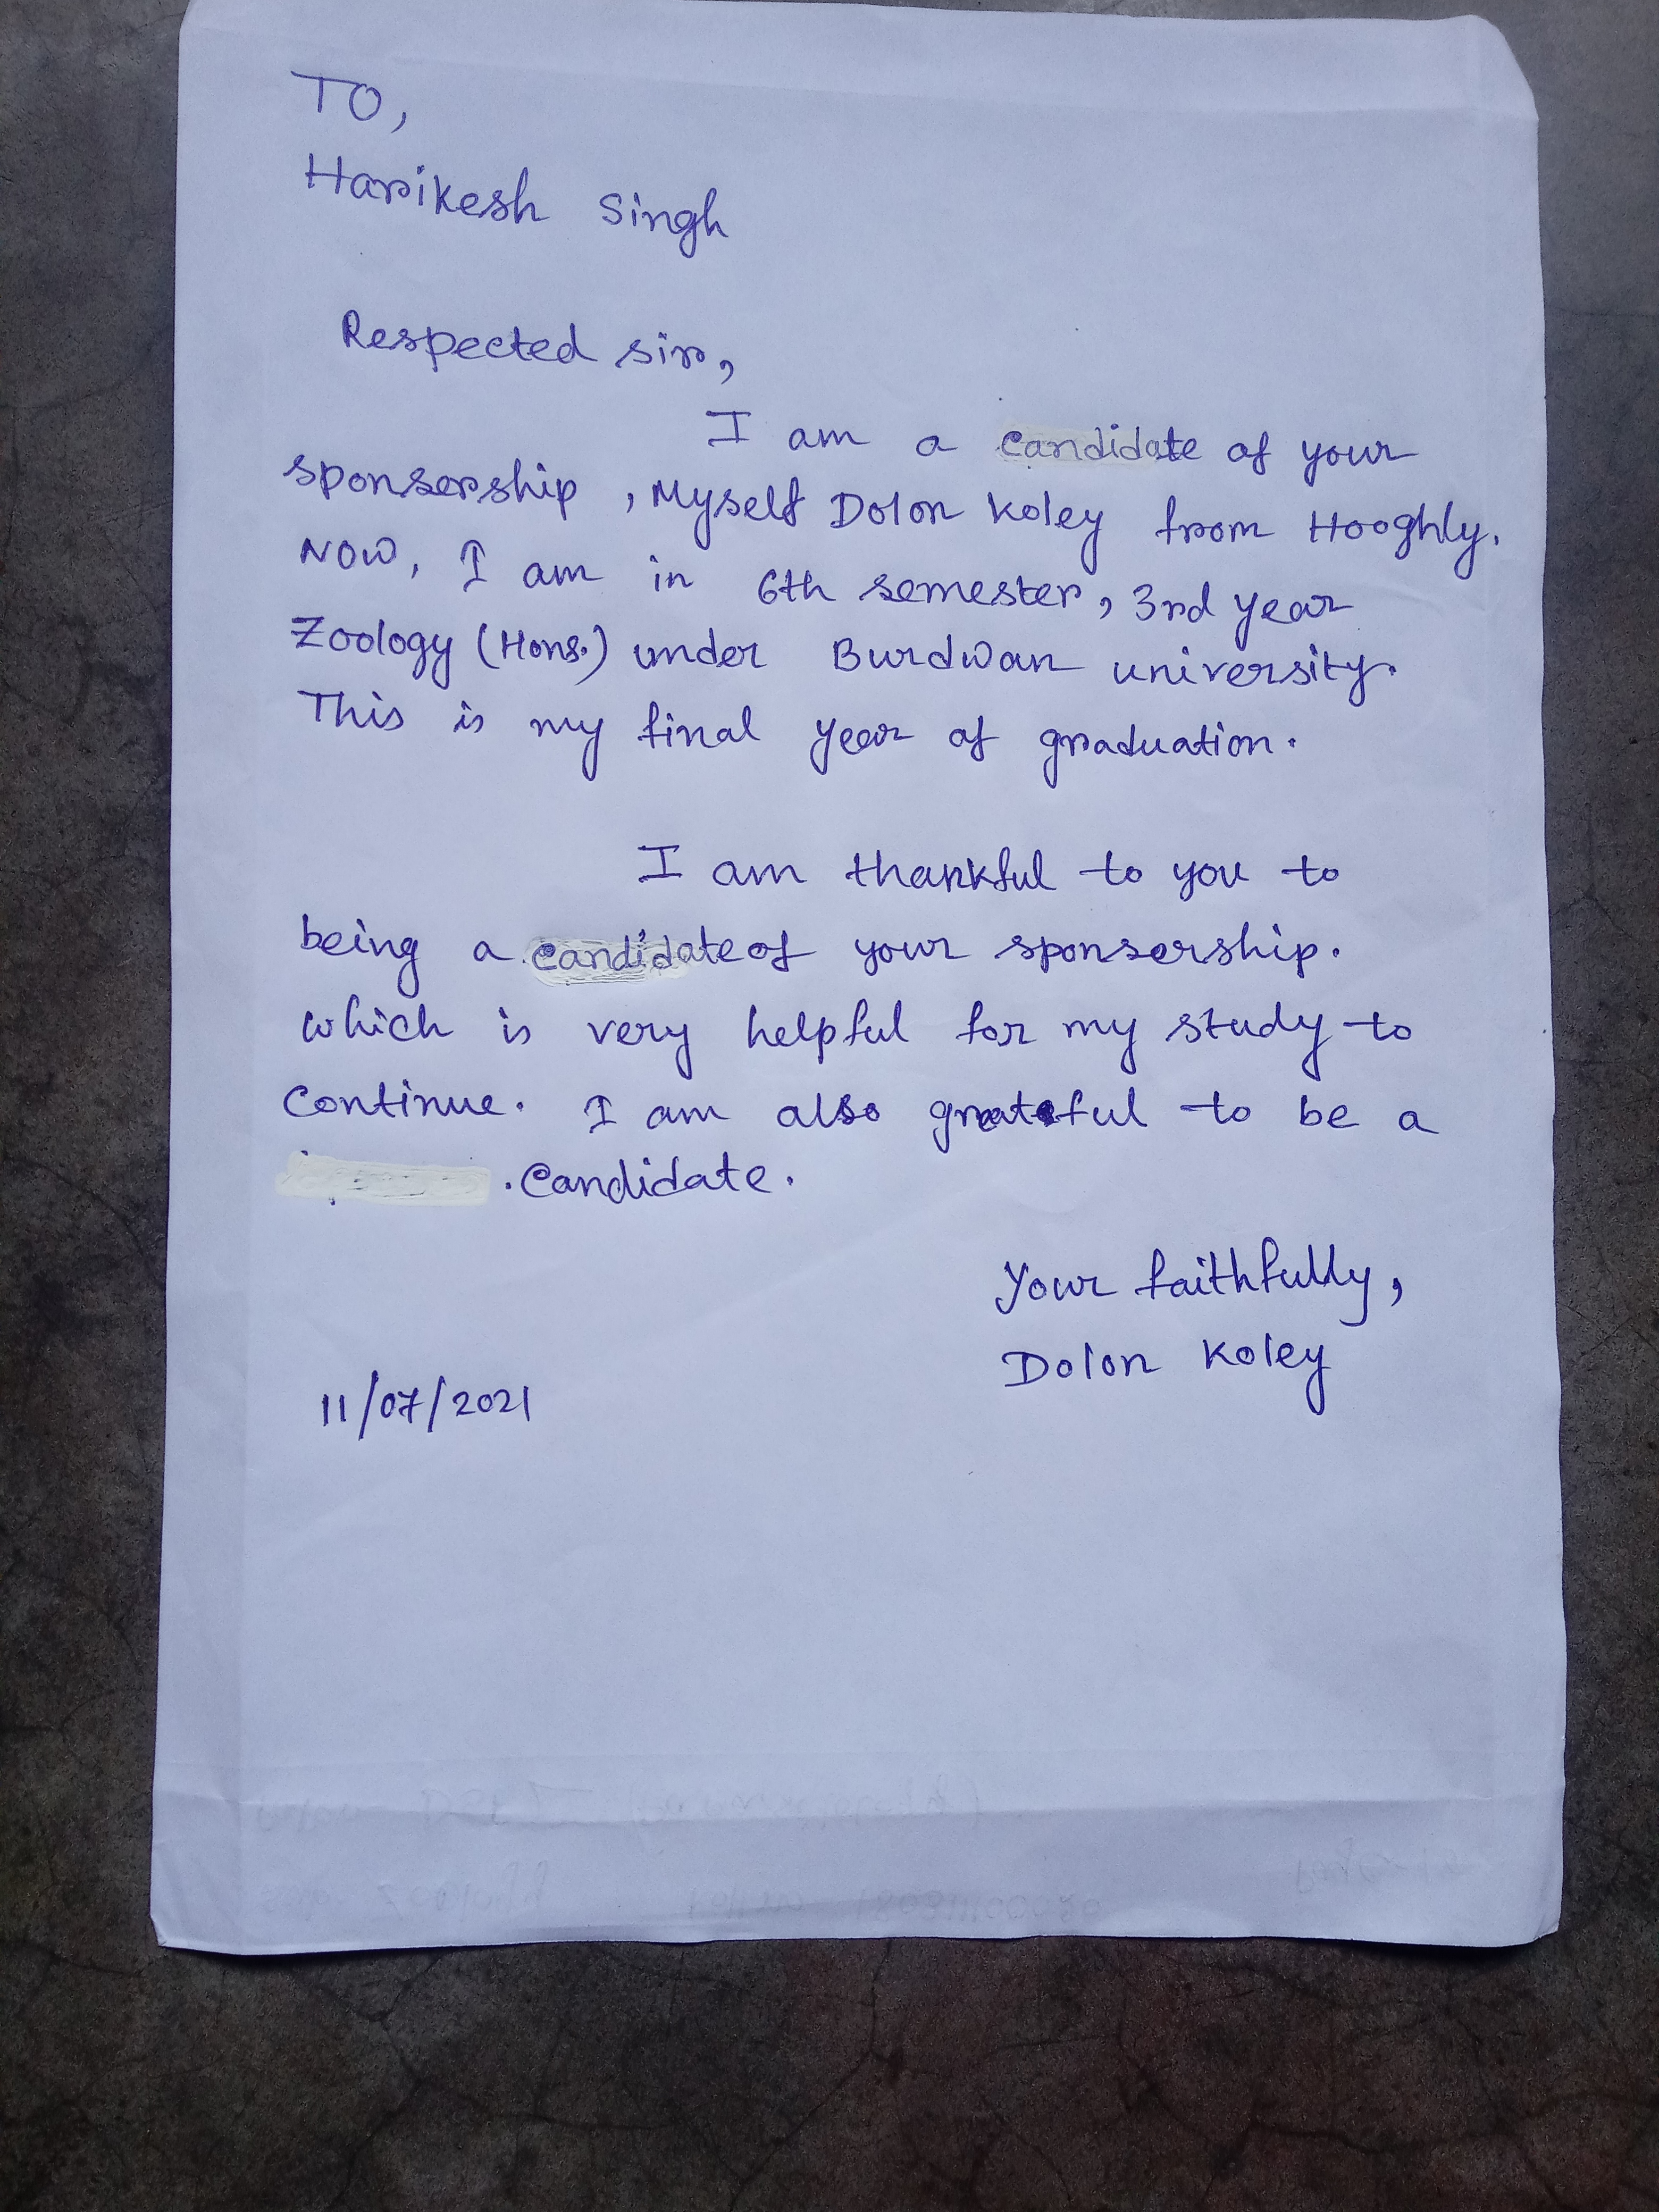 TO,
Harikesh Singh
Respected sir,
I am a candidate of your
sponsership, Myself Dolon Koley from Hooghly.
Now, I am in 6th semester, 3rd year
Zoology (Hons.) under Burdwan university.
This is my final year of graduation.
I am thankful to you to
being a candidate of your sponsership.
which is very helpful for my study to
continue. I am also grateful to be a
. candidate.
Your faithfully,
Dolon Koley
11/07/2021